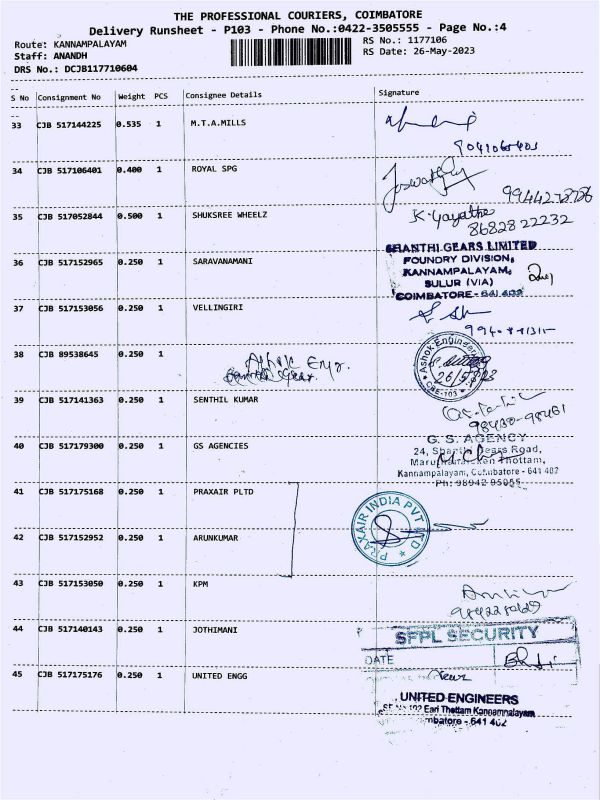 THE PROFESSIONAL COURIERS, COIMBATORE
Delivery Runsheet - P103 - Phone No.:0422-3505555 - Page No.:4
Route: KANNAMPALAYAM RS No.: 1177106
Staff: ANANDH RS Date: 26-May-2023
DRS No.: DCJB117710604
S No Consignment No Weight PCS Consignee Details Signature
33 CJB 517144225 0.535 1 M.T.A.MILLS
34 CJB 517106401 0.400 1 ROYAL SPG
35 CJB 517052844 0.500 1 SHUKSREE WHEELZ K. Gayathri
86828 22232
SHANTHI GEARS LIMITED
FOUNDRY DIVISION,
36 CJB 517152965 0.250 1 SARAVANAMANI KANNAMPALAYAM,
SULUR (VIA)
COIMBATORE - 641 402
37 CJB 517153056 0.250 1 VELLINGIRI
38 CJB 89538645 0.250 1 Ashok Engr.
Ashok Engineer
26/5/23
CBE-103
39 CJB 517141363 0.250 1 SENTHIL KUMAR
98430-98461
40 CJB 517179300 0.250 1 GS AGENCIES G.S. AGENCY
24, Shanthi Gears Road,
Thottam,
Kannampalayam, Coimbatore - 641 402
Ph: 98942 95055
41 CJB 517175168 0.250 1 PRAXAIR PLTD PRAXAIR INDIA PVT LTD
42 CJB 517152952 0.250 1 ARUNKUMAR
43 CJB 517153050 0.250 1 KPM
44 CJB 517140143 0.250 1 JOTHIMANI SFPL SECURITY
DATE
45 CJB 517175176 0.250 1 UNITED ENGG
UNITED ENGINEERS
Eari Thottam Kannampalayam
641 402